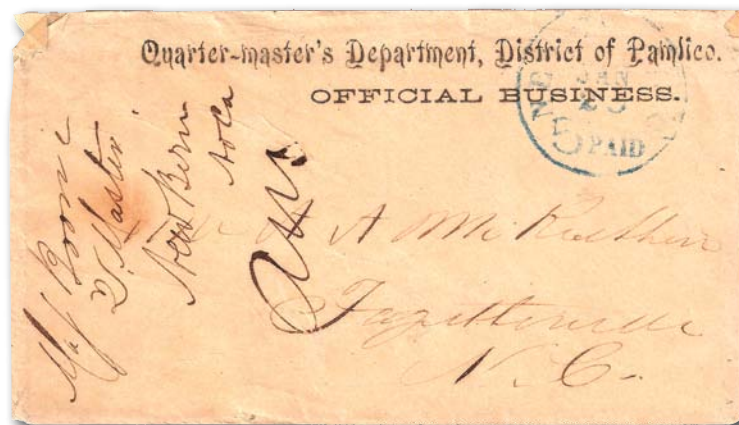 Quarter-master's Department, District of Pamlico.
OFFICIAL BUSINESS.
JAN
PAID
Maj Boone
Q. Master
New Bern
A McKeethen
Fayetteville
N. C.